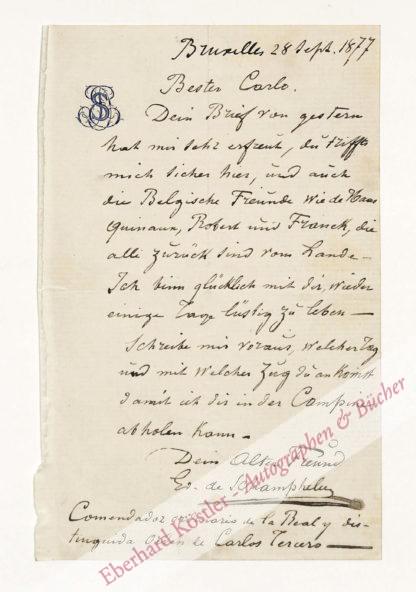 Bruxelles 28 Sept. 1877
SL
Bester Carlo.
Dein Brief von gestern
hat mir sehr erfreut, du triffst
mich sicher hier, und auch
die Belgische Freunde wie de Haas
Quinaux, Robert und Franck, die
alle zurück sind vom Lande –
Ich binn glücklich mit dir, wieder
einige Tage lüstig zu leben –
Schreibe mir voraus, welcher Tag
und mit welcher Zug du ankomst
damit ich dir in der
abholen kann –
Dein Alter Freund
Ed. de Schampheleer
Comendador de la Real y dis-
tinguida Orden de Carlos Tercero
Eberhard Köstler - Autographen & Bücher